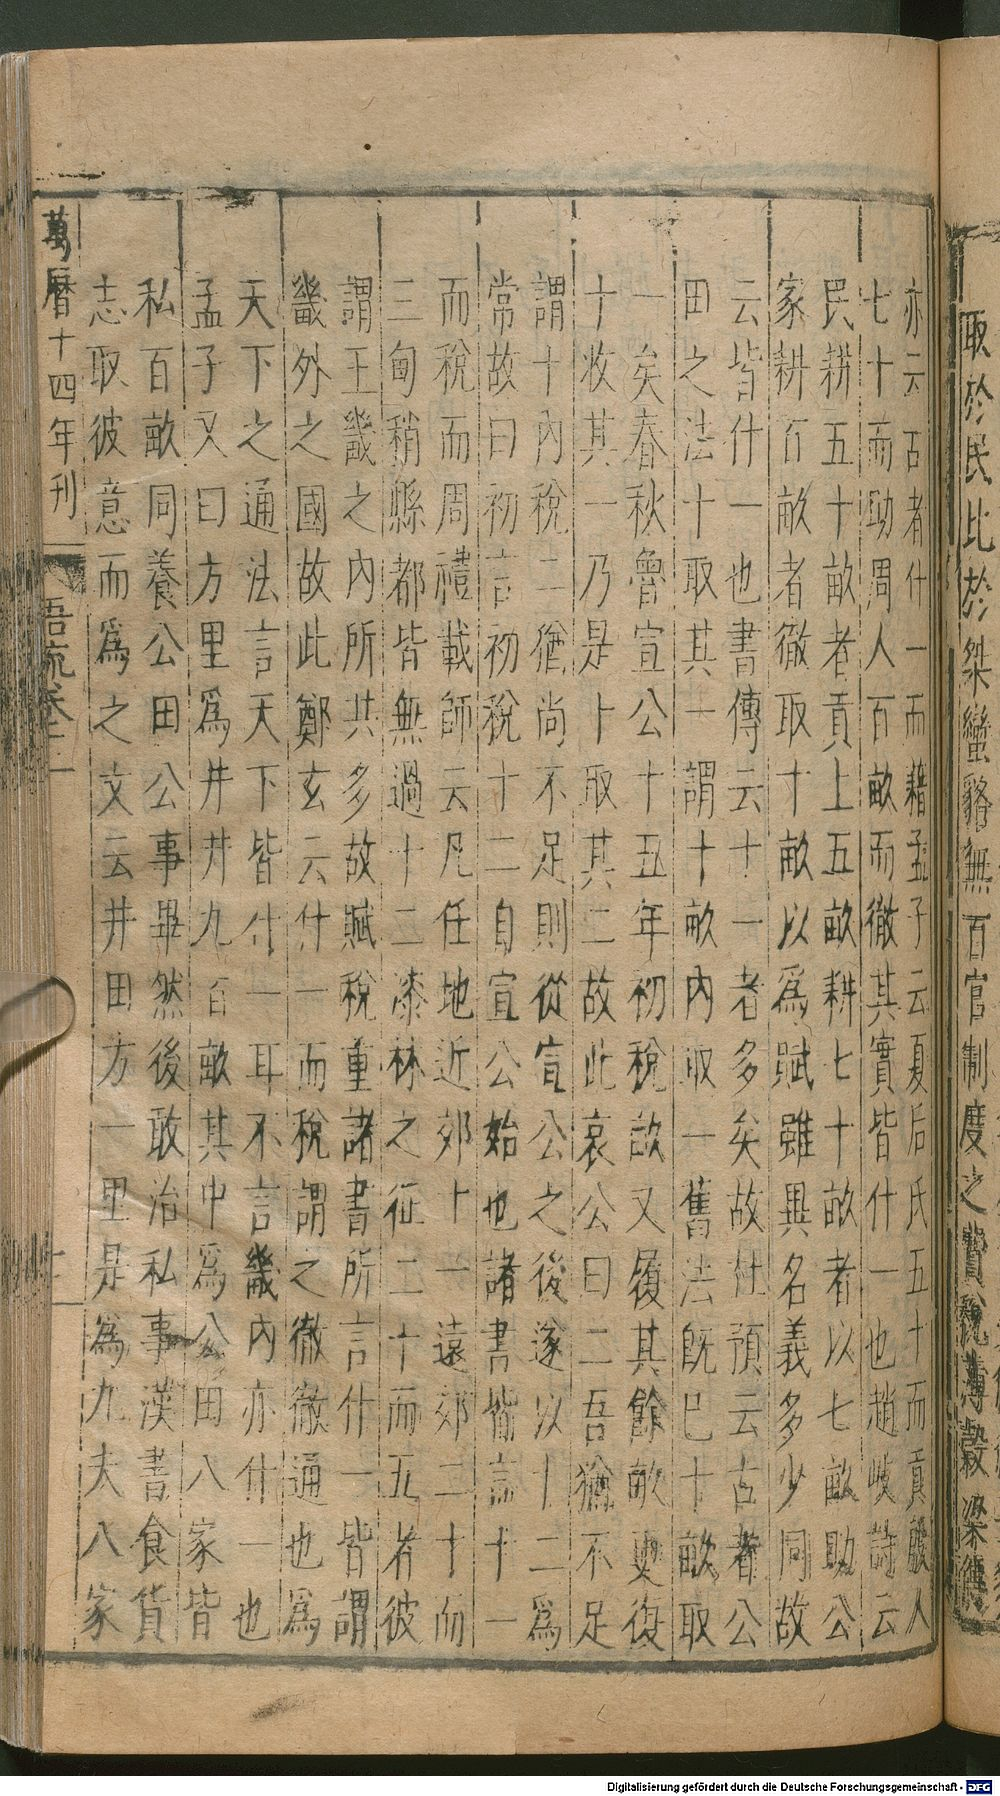 取於民比於桀蠻貉無百官制度之費稅薄穀梁傳
亦云古者什一而藉孟子云夏后氏五十而貢殷人
七十而助周人百畝而徹其實皆什一也趙岐註云
民耕五十畝者貢上五畝耕七十畝者以七畝助公
家耕百畝者徹取十畝以爲賦雖異名義多少同故
云皆什一也書傳云十一者多矣故杜預云古者公
田之法十取其一謂十畝內取一舊法既巳十畝取
一矣春秋魯宣公十五年初稅畝又履其餘畝更復
十收其一乃是十取其二故此哀公曰二吾猶不足
謂十內稅二猶尚不足則從宣公之後遂以十二爲
常故曰初言初稅十二自宣公始也諸書皆言十一
而稅而周禮載師云凡任地近郊十一遠郊二十而
三甸稍縣都皆無過十二漆林之征二十而五者彼
謂王畿之內所共多故賦稅重諸書所言什一皆謂
畿外之國故此鄭玄云什一而稅謂之徹徹通也爲
天下之通法言天下皆什一耳不言畿內亦什一也
孟子又曰方里爲井井九百畝其中爲公田八家皆
私百畝同養公田公事畢然後敢治私事漢書食貨
志取彼意而爲之文云井田方一里是爲九夫八家
萬曆十四年刊 語疏卷十二
Digitalisierung gefördert durch die Deutsche Forschungsgemeinschaft - DFG